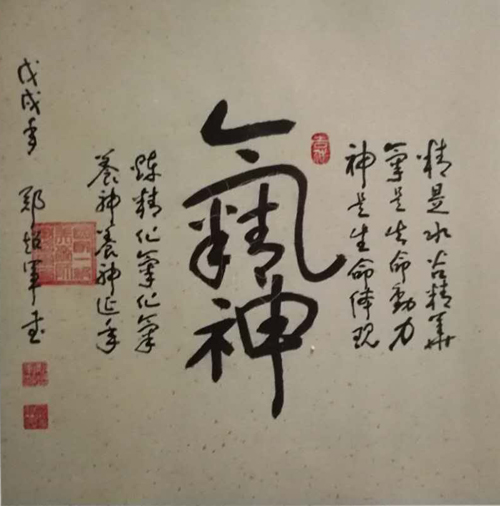 精是水谷精華
氣是生命動力
神是生命体現
氣精神
炼精化氣化氣
養神養神延年
戊戌年 郑超軍书